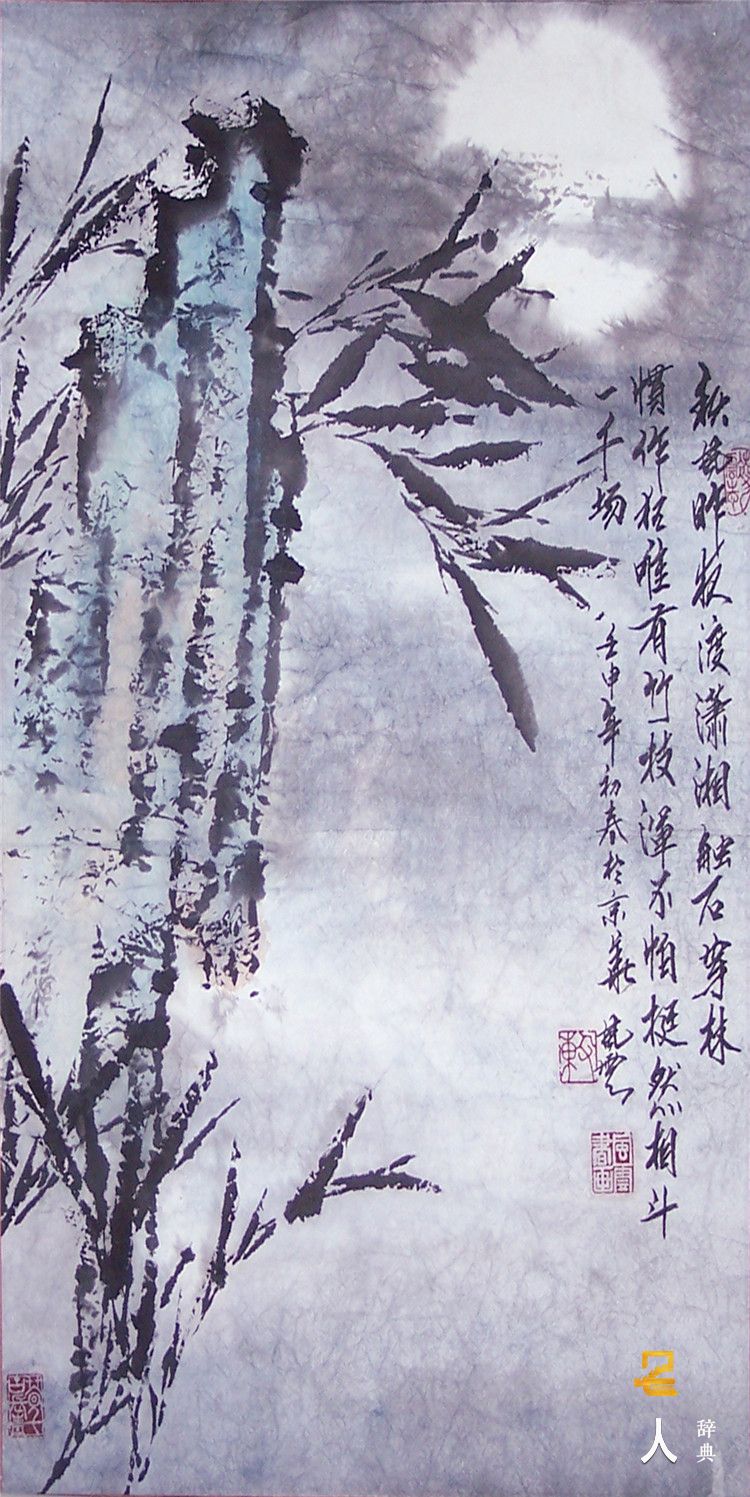 秋風昨夜渡潇湘触石穿林
惯作狂唯有竹枝渾不怕挺然相斗
一千场
壬申年初春於京華 風雲
風雲書画
人
辞典